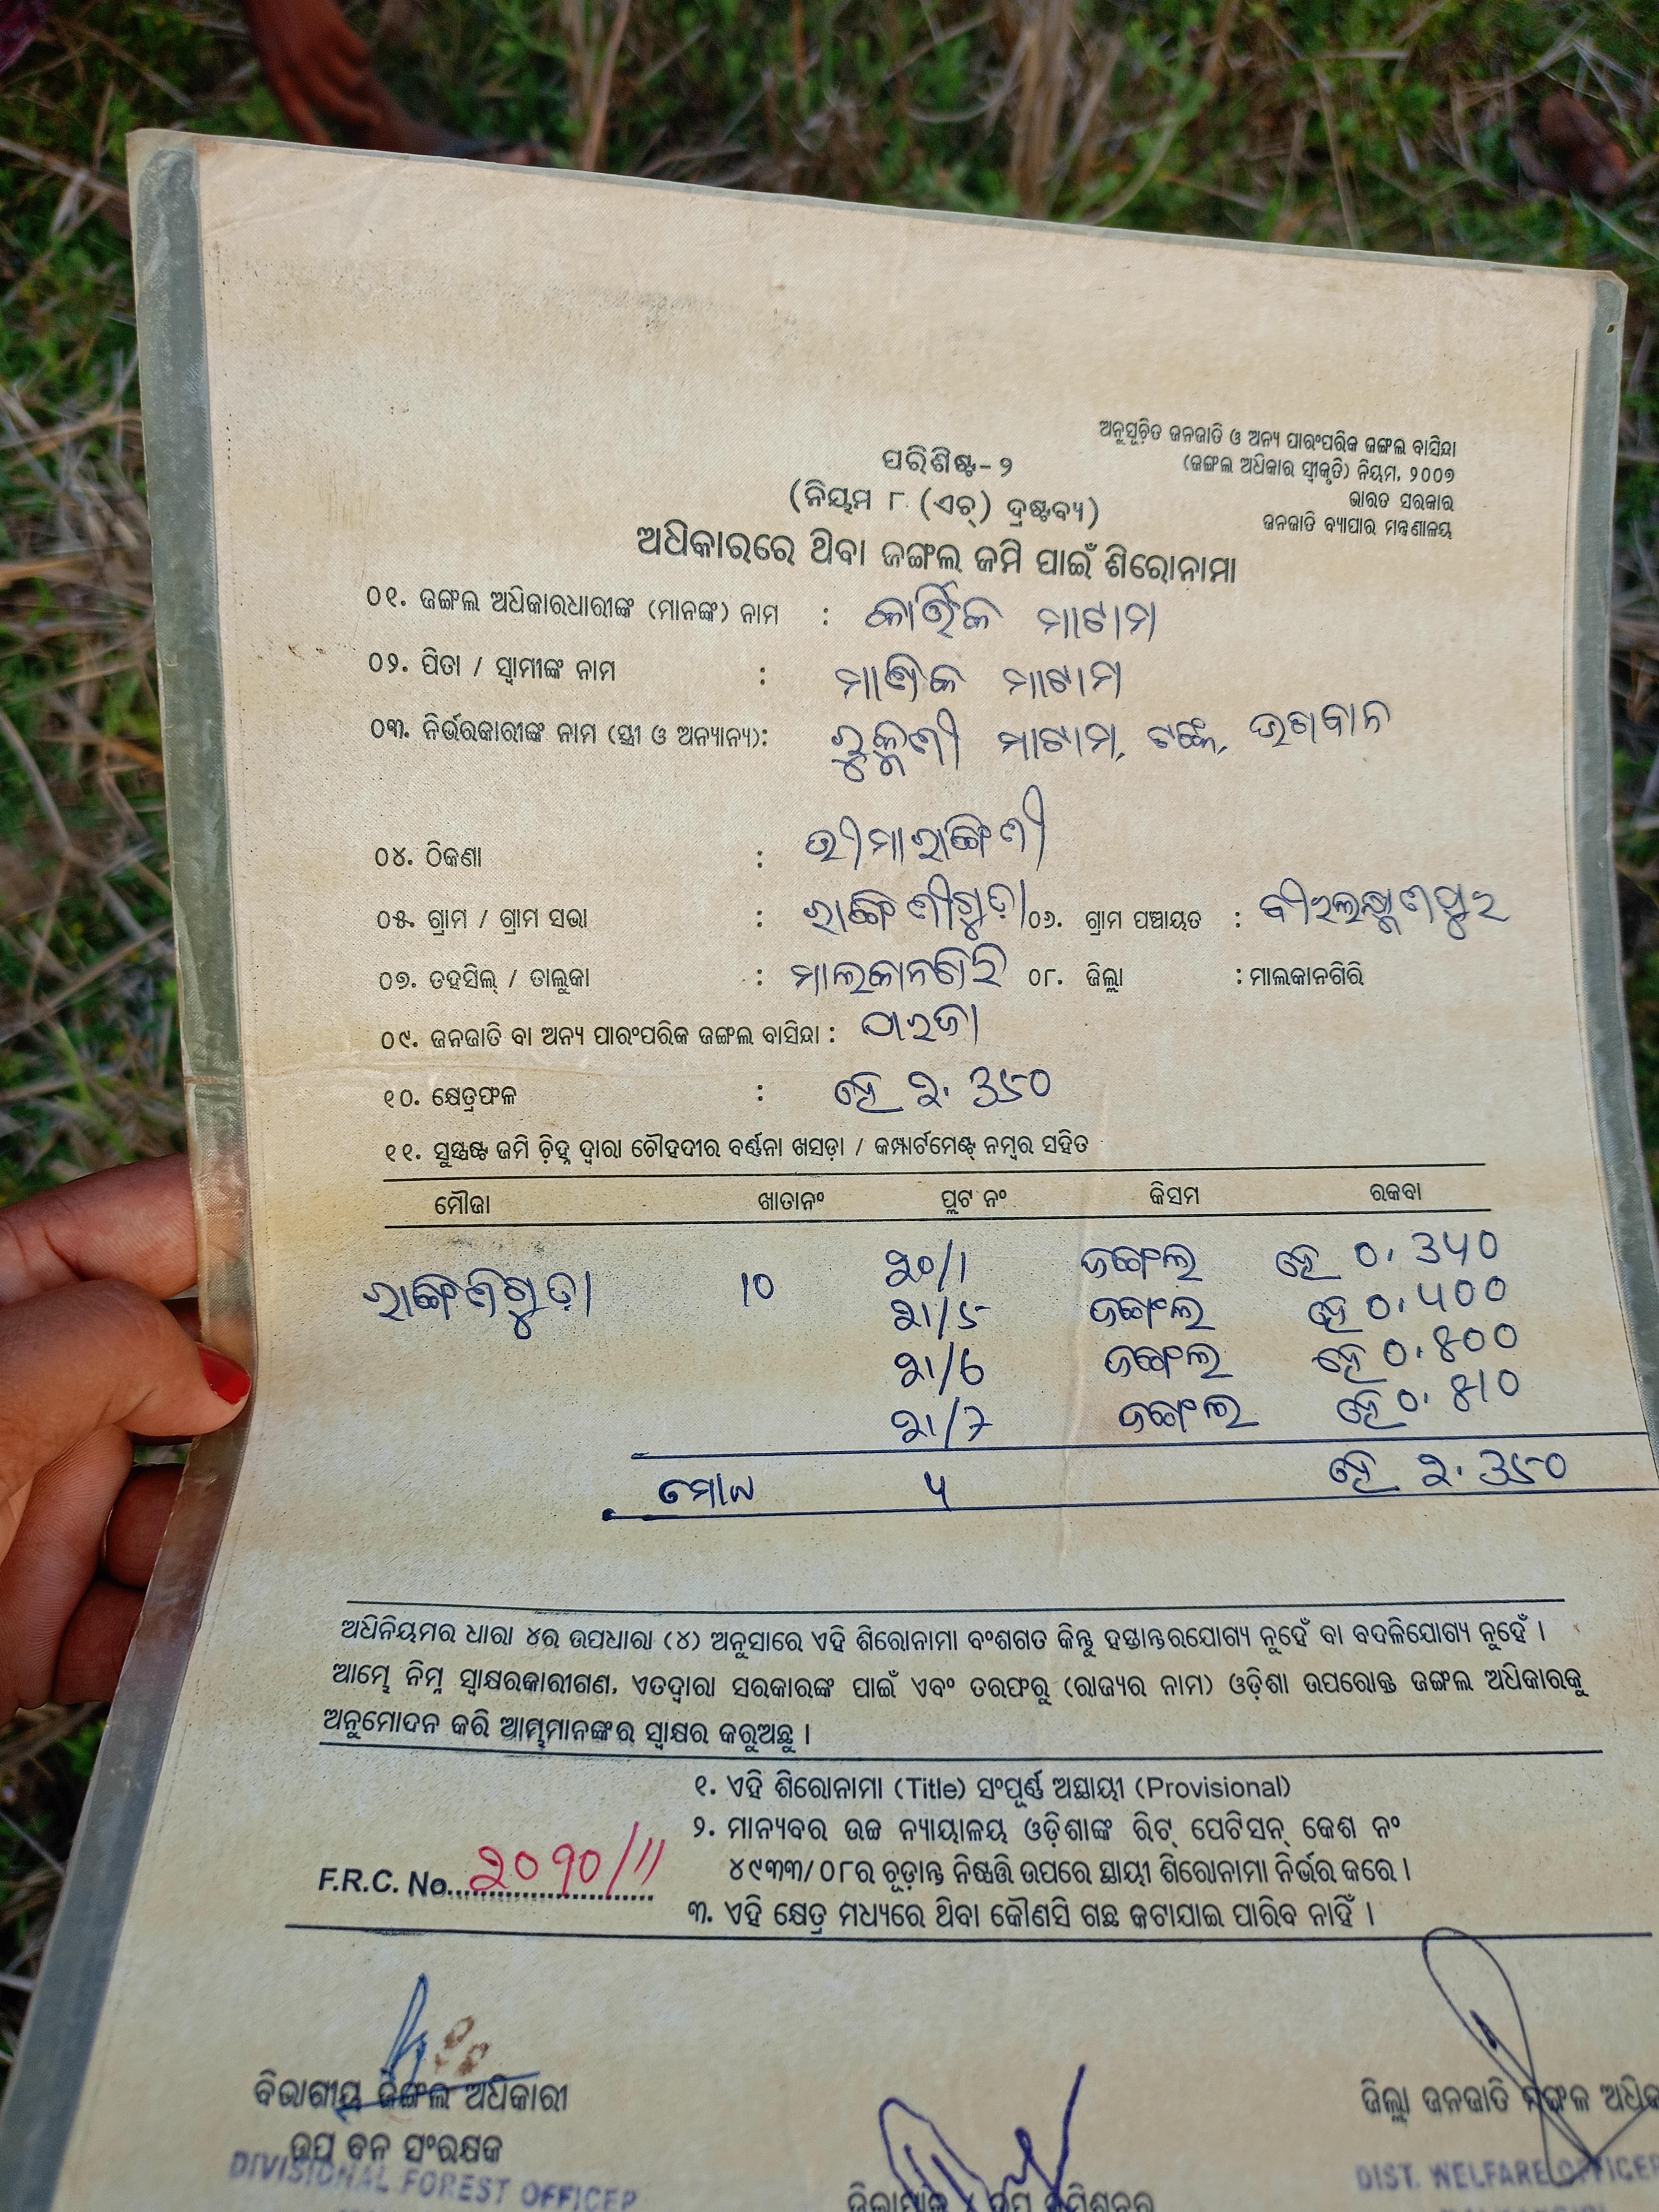 ଅନୁସୂଚିତ ଜନଜାତି ଓ ଅନ୍ୟ ପାରଂପରିକ ଜଙ୍ଗଲ ବାସିନ୍ଦା
(ଜଙ୍ଗଲ ଅଧିକାର ସ୍ୱୀକୃତି) ନିୟମ, ୨୦୦୭
ଭାରତ ସରକାର
ଜନଜାତି ବ୍ୟାପାର ମନ୍ତ୍ରଣାଳୟ
ପରିଶିଷ୍ଟ-୨
(ନିୟମ ୮ (ଏଚ୍) ଦ୍ରଷ୍ଟବ୍ୟ)
ଅଧିକାରରେ ଥିବା ଜଙ୍ଗଲ ଜମି ପାଇଁ ଶିରୋନାମା
୦୧. ଜଙ୍ଗଲ ଅଧିକାରଧାରୀଙ୍କ (ମାନଙ୍କ) ନାମ : କାର୍ତ୍ତିକ ମାଟାମ
୦୨. ପିତା / ସ୍ୱାମୀଙ୍କ ନାମ : ମାଣିକ ମାଟାମ
୦୩. ନିର୍ଭରକାରୀଙ୍କ ନାମ (ସ୍ତ୍ରୀ ଓ ଅନ୍ୟାନ୍ୟ): ରୁକୁଣୀ ମାଟାମ, ଟଙ୍କ, ଭଗବାନ
୦୪. ଠିକଣା : ଭୀମାରାଙ୍ଗିଣୀ
୦୫. ଗ୍ରାମ / ଗ୍ରାମ ସଭା : ରାଙ୍ଗିଣୀଗୁଡ଼ା ୦୬. ଗ୍ରାମ ପଞ୍ଚାୟତ : ବୀରଲକ୍ଷ୍ମଣପୁର
୦୭. ତହସିଲ୍ / ତାଲୁକା : ମାଲକାନଗିରି ୦୮. ଜିଲ୍ଲା : ମାଲକାନଗିରି
୦୯. ଜନଜାତି ବା ଅନ୍ୟ ପାରଂପରିକ ଜଙ୍ଗଲ ବାସିନ୍ଦା : ପାରଜା
୧୦. କ୍ଷେତ୍ରଫଳ : ହେ ୨.୩୫୦
୧୧. ସୁସ୍ପଷ୍ଟ ଜମି ଚିହ୍ନ ଦ୍ୱାରା ଚୌହଦୀର ବର୍ଣ୍ଣନା ଖସଡ଼ା / କମ୍ପାର୍ଟମେଣ୍ଟ୍ ନମ୍ବର ସହିତ
ମୌଜା ଖାତାନଂ ପ୍ଲଟ ନଂ କିସମ ରକବା
ରାଙ୍ଗିଣିଗୁଡ଼ା ୧୦ ୨୦/୧ ଜଙ୍ଗଲ ହେ ୦.୩୪୦
୨୧/୫ ଜଙ୍ଗଲ ହେ ୦.୪୦୦
୨୧/୬ ଜଙ୍ଗଲ ହେ ୦.୫୦୦
୨୧/୨ ଜଙ୍ଗଲ ହେ ୦.୫୧୦
ମୋଟ ୪ ହେ ୨.୩୫୦
ଅଧିନିୟମର ଧାରା ୪ର ଉପଧାରା (୪) ଅନୁସାରେ ଏହି ଶିରୋନାମା ବଂଶଗତ କିନ୍ତୁ ହସ୍ତାନ୍ତରଯୋଗ୍ୟ ନୁହେଁ ବା ବଦଳିଯୋଗ୍ୟ ନୁହେଁ ।
ଆମ୍ଭେ ନିମ୍ନ ସ୍ୱାକ୍ଷରକାରୀଗଣ, ଏତଦ୍ୱାରା ସରକାରଙ୍କ ପାଇଁ ଏବଂ ତରଫରୁ (ରାଜ୍ୟର ନାମ) ଓଡ଼ିଶା ଉପରୋକ୍ତ ଜଙ୍ଗଲ ଅଧିକାରକୁ
ଅନୁମୋଦନ କରି ଆମ୍ଭମାନଙ୍କର ସ୍ୱାକ୍ଷର କରୁଅଛୁ ।
୧. ଏହି ଶିରୋନାମା (Title) ସଂପୂର୍ଣ୍ଣ ଅସ୍ଥାୟୀ (Provisional)
୨. ମାନ୍ୟବର ଉଚ୍ଚ ନ୍ୟାୟାଳୟ ଓଡ଼ିଶାଙ୍କ ରିଟ୍ ପେଟିସନ୍ କେଶ ନଂ
୪୯୩୩/୦୮ର ଚୂଡ଼ାନ୍ତ ନିଷ୍ପତ୍ତି ଉପରେ ସ୍ଥାୟୀ ଶିରୋନାମା ନିର୍ଭର କରେ ।
F.R.C. No. ୨୦୧୦/11
୩. ଏହି କ୍ଷେତ୍ର ମଧ୍ୟରେ ଥିବା କୌଣସି ଗଛ କଟାଯାଇ ପାରିବ ନାହିଁ ।
ବିଭାଗୀୟ ଜଙ୍ଗଲ ଅଧିକାରୀ
ଉପ ବନ ସଂରକ୍ଷକ
DIVISIONAL FOREST OFFICER
ଜିଲ୍ଲା ଜନଜାତି ମଙ୍ଗଳ
DIST. WELFARE OFFICER